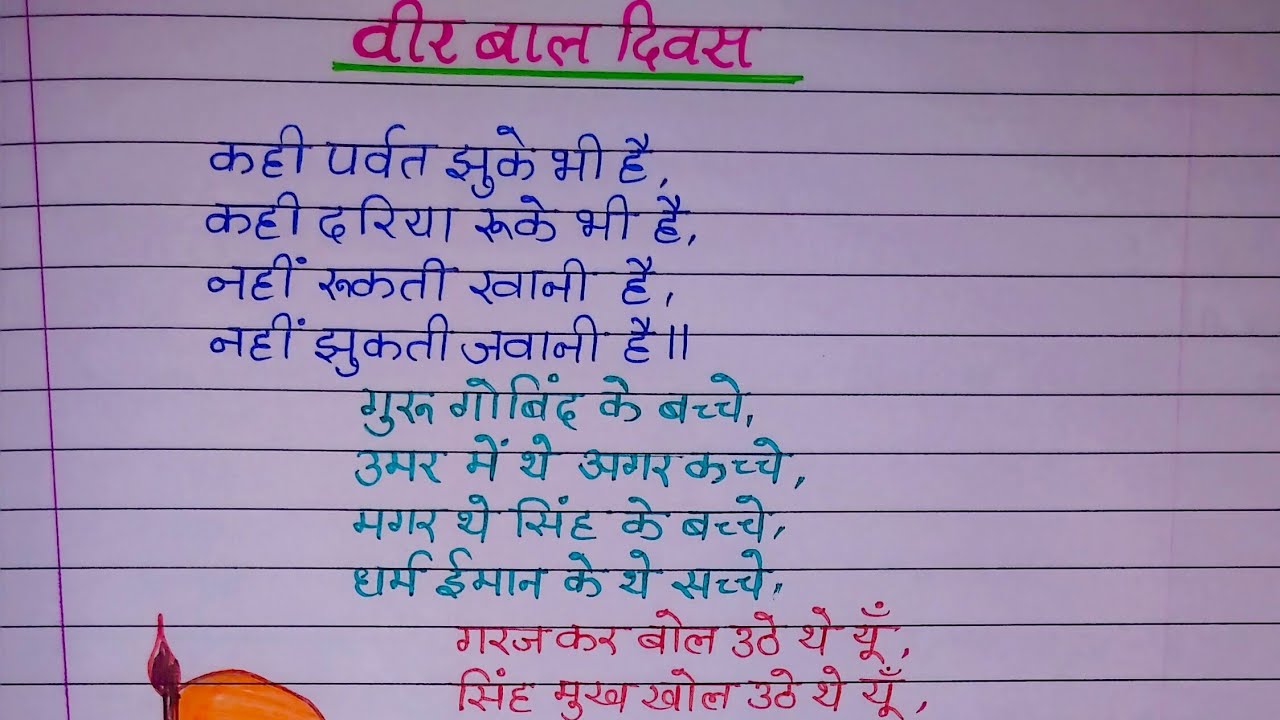 वीर बाल दिवस
कही पर्वत झुके भी है,
कही दरिया रूके भी है,
नहीं रूकती रवानी है,
नहीं झुकती जवानी है॥
गुरू गोबिंद के बच्चे,
उमर में थे अगर कच्चे,
मगर थे सिंह के बच्चे,
धर्म ईमान के थे सच्चे,
गरज कर बोल उठे थे यूँ,
सिंह मुख खोल उठे थे यूँ,